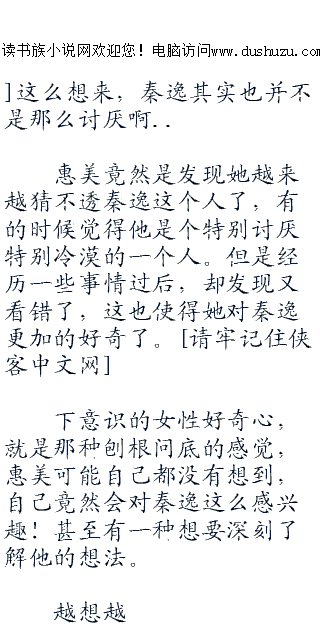 读书族小说网欢迎您！电脑访问www.dushuzu.com
]这么想来，秦逸其实也并不
是那么讨厌啊..
惠美竟然是发现她越来
越猜不透秦逸这个人了，有
的时候觉得他是个特别讨厌
特别冷漠的一个人。但是经
历一些事情过后，却发现又
看错了，这也使得她对秦逸
更加的好奇了。[请牢记住侠
客中文网]
下意识的女性好奇心，
就是那种刨根问底的感觉，
惠美可能自己都没有想到，
自己竟然会对秦逸这么感兴
趣！甚至有一种想要深刻了
解他的想法。
越想越